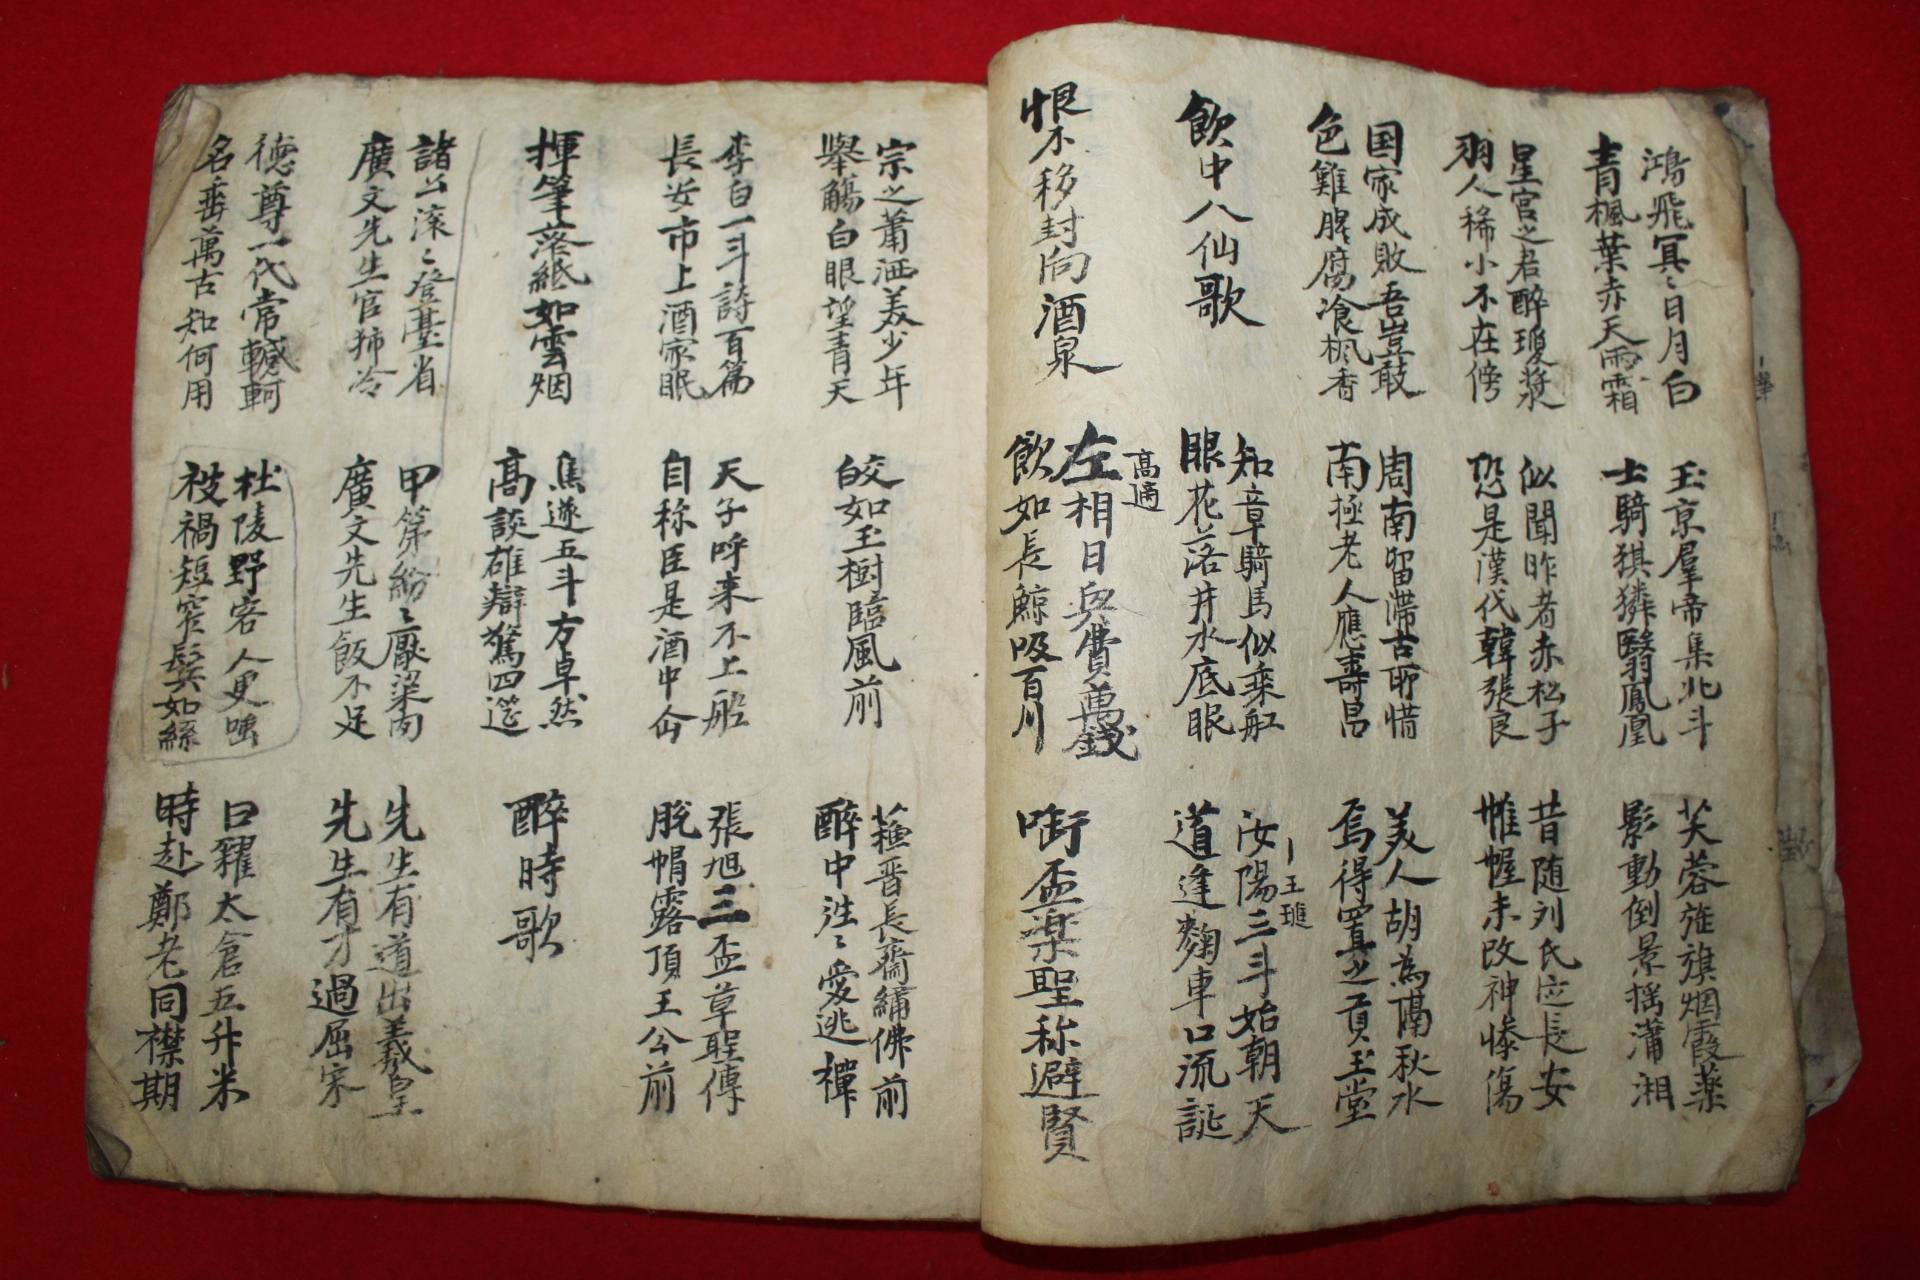 鴻飛冥〻日月白
青楓葉赤天雨霜
玉京羣帝集北斗
士騎猉獜翳鳳凰
芙蓉旌旗烟霞落
影動倒景揺瀟湘
星宮之君醉瓊漿
羽人稀小不在傍
似聞昨者赤松子
恐是漢代韓張良
昔随刘氏定長安
惟幄未改神慘傷
国家成敗吾豈敢
色難腥腐飡楓香
周南留滞古所惜
南極老人應壽昌
美人胡為隔秋水
焉得置之貢玉堂
飲中八仙歌
知章騎馬似乘舡
眼花落井水底眠
汝陽三斗始朝天
王璡
道逢麴車口流涎
恨不移封向酒泉
高適
左相日興費萬錢
飲如長鯨吸百川
啣盃楽聖称避賢
宗之蕭洒美少年
舉觴白眼望青天
皎如玉樹臨風前
蘓晋長齋繡佛前
醉中往〻愛逃禪
李白一斗詩百篇
長安市上酒家眠
天子呼来不上船
自称臣是酒中仙
張旭三盃草聖傳
脫帽露頂王公前
揮筆落紙如雲烟
焦遂五斗方卓然
高談雄辯驚四筵
醉時歌
諸公滾〻登臺省
廣文先生官独冷
甲第紛〻厭梁肉
廣文先生飯不足
先生有道出羲皇
先生有才過屈宋
德尊一代常轗軻
名垂萬古知何用
杜陵野客人更嗤
被褐短窄鬂如絲
日糴太倉五升米
時赴鄭老同襟期